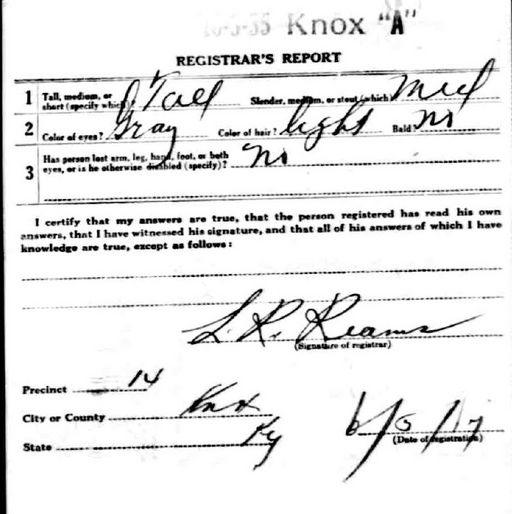 Knox "A"
REGISTRAR'S REPORT
1 Tall, medium, or short (specify which)? Tall Slender, medium, or stout (which)? Med
2 Color of eyes? Gray Color of hair? light Bald? No
3 Has person lost arm, leg, hand, foot, or both eyes, or is he otherwise disabled (specify)? No
I certify that my answers are true, that the person registered has read his own
answers, that I have witnessed his signature, and that all of his answers of which I have
knowledge are true, except as follows:
L. R. Reams
(Signature of registrar)
Precinct 14
City or County Knox
State Ky 6/5/17
(Date of registration)